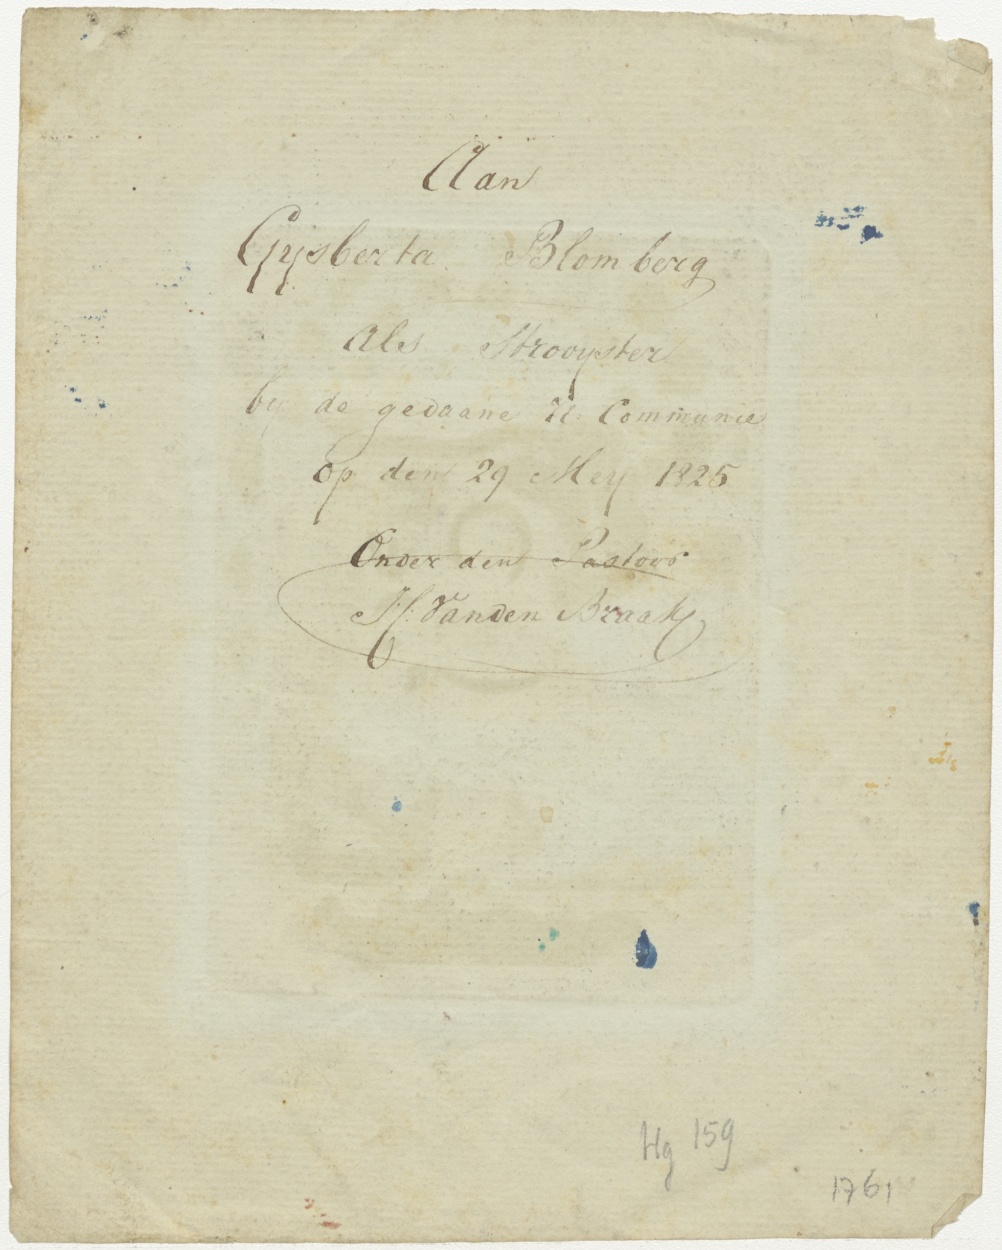 Aan
Gysberta Blomberg
Als Strooyster
by de gedaane H. Communie
op den 29 Mey 1825
Onder den Pastoor
H: Vanden Braak
Hg 159
1761